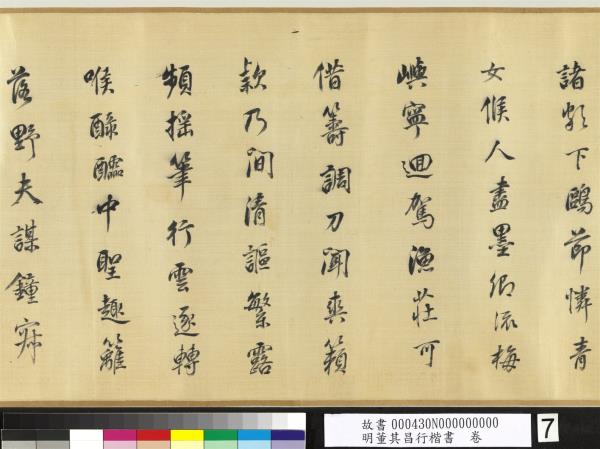 諸彰下鷗節憐青
女候人盡墨卿流梅
嶼寧迴駕漁莊可
借籌調刀聞爽籟
款乃間清謳繁露
頻搖筆行雲逐轉
喉醁醽中聖趣籬
落野夫謀鐘
故書 000430N000000000
明董其昌行楷書 卷
7